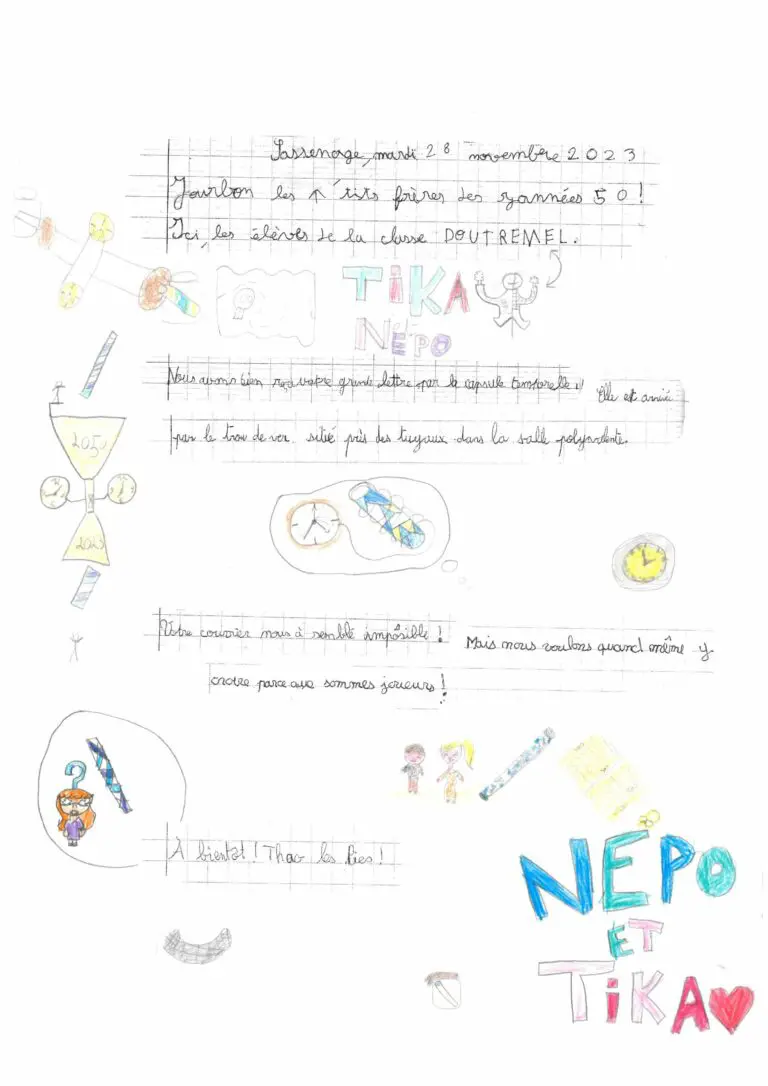 Sassenage, mardi 28 novembre 2023
Jourbon les ↑ 'tits frères des yannées 50!
Ici, les élèves de la classe DOUTREMEL.
TIKA
NÉPO
Nous avons bien reçu votre grande lettre par la capsule temporelle!! Elle est arrivée
par le trou de ver situé près des tuyaux dans la salle polyvalente.
2050
2023
Votre courrier nous à semblé impôssible! Mais nous voulons quand même y
croire parce que sommes joueurs!
?
À bientôt! Thao les
NÉPO
ET
TIKA